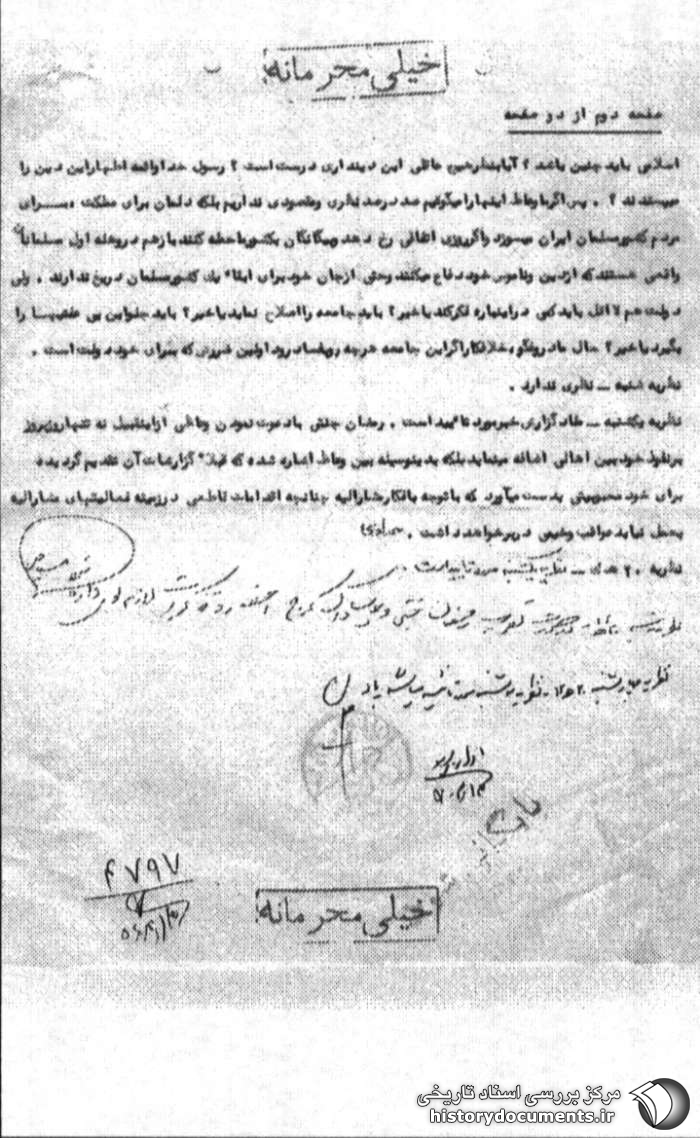 خیلی محرمانه
صفحه دوم از دو صفحه
اسلامی باید چنین باشد ؟ آیا بنظر هیچ عاقلی این دینداری درست است ؟ رسول خدا و ائمه اطهار این دین را
میپسندند ؟ . پس اگر ما وعاظ اینها را میگوئیم صد در صد نظری و مقصودی نداریم بلکه دلمان برای مملکت و برای
مردم کشور مسلمان ایران میسوزد و اگر روزی اتفاقی رخ دهد و بیگانگان بکشور ما حمله کنند باز هم در وهله اول مسلمانان
واقعی هستند که از دین و ناموس خود دفاع میکنند و حتی از جان خود برای ابقاء یک کشور مسلمان دریغ ندارند . ولی
دولت هم لااقل باید کمی در اینباره فکر کند یا خیر ؟ باید جامعه را اصلاح نماید یا خیر ؟ باید جلو این بی عفتیها را
بگیرد یا خیر ؟ حال ما دروغگو و خلافکار اگر این جامعه هرچه رو بفساد رود اولین ضررش که برای خود دولت است .
نظریه شنبه ــ نظری ندارد .
نظریه یکشنبه ــ مفاد گزارش خبر مورد تائید است . رمضان جنتی با دعوت نمودن وعاظی از اینقبیل نه تنها روز بروز
بر نفوذ خود بین اهالی اضافه مینماید بلکه بدینوسیله بین وعاظ اشاره شده که قبلا" گزارشات آن تقدیم گردیده
برای خود محبوبیتی بدست میآورد که با توجه بافکار مشارالیه چنانچه اقدامات قاطعی در زمینه فعالیتهای مشارالیه
بعمل نیاید عواقب وخیمی در بر خواهد داشت .
نظریه ۲۰ هـ ــ نظریه یکشنبه مورد تایید است .
نظریه چهارشنبه
۴۷۹۷
خیلی محرمانه
مرکز بررسی اسناد تاریخی
historydocuments.ir